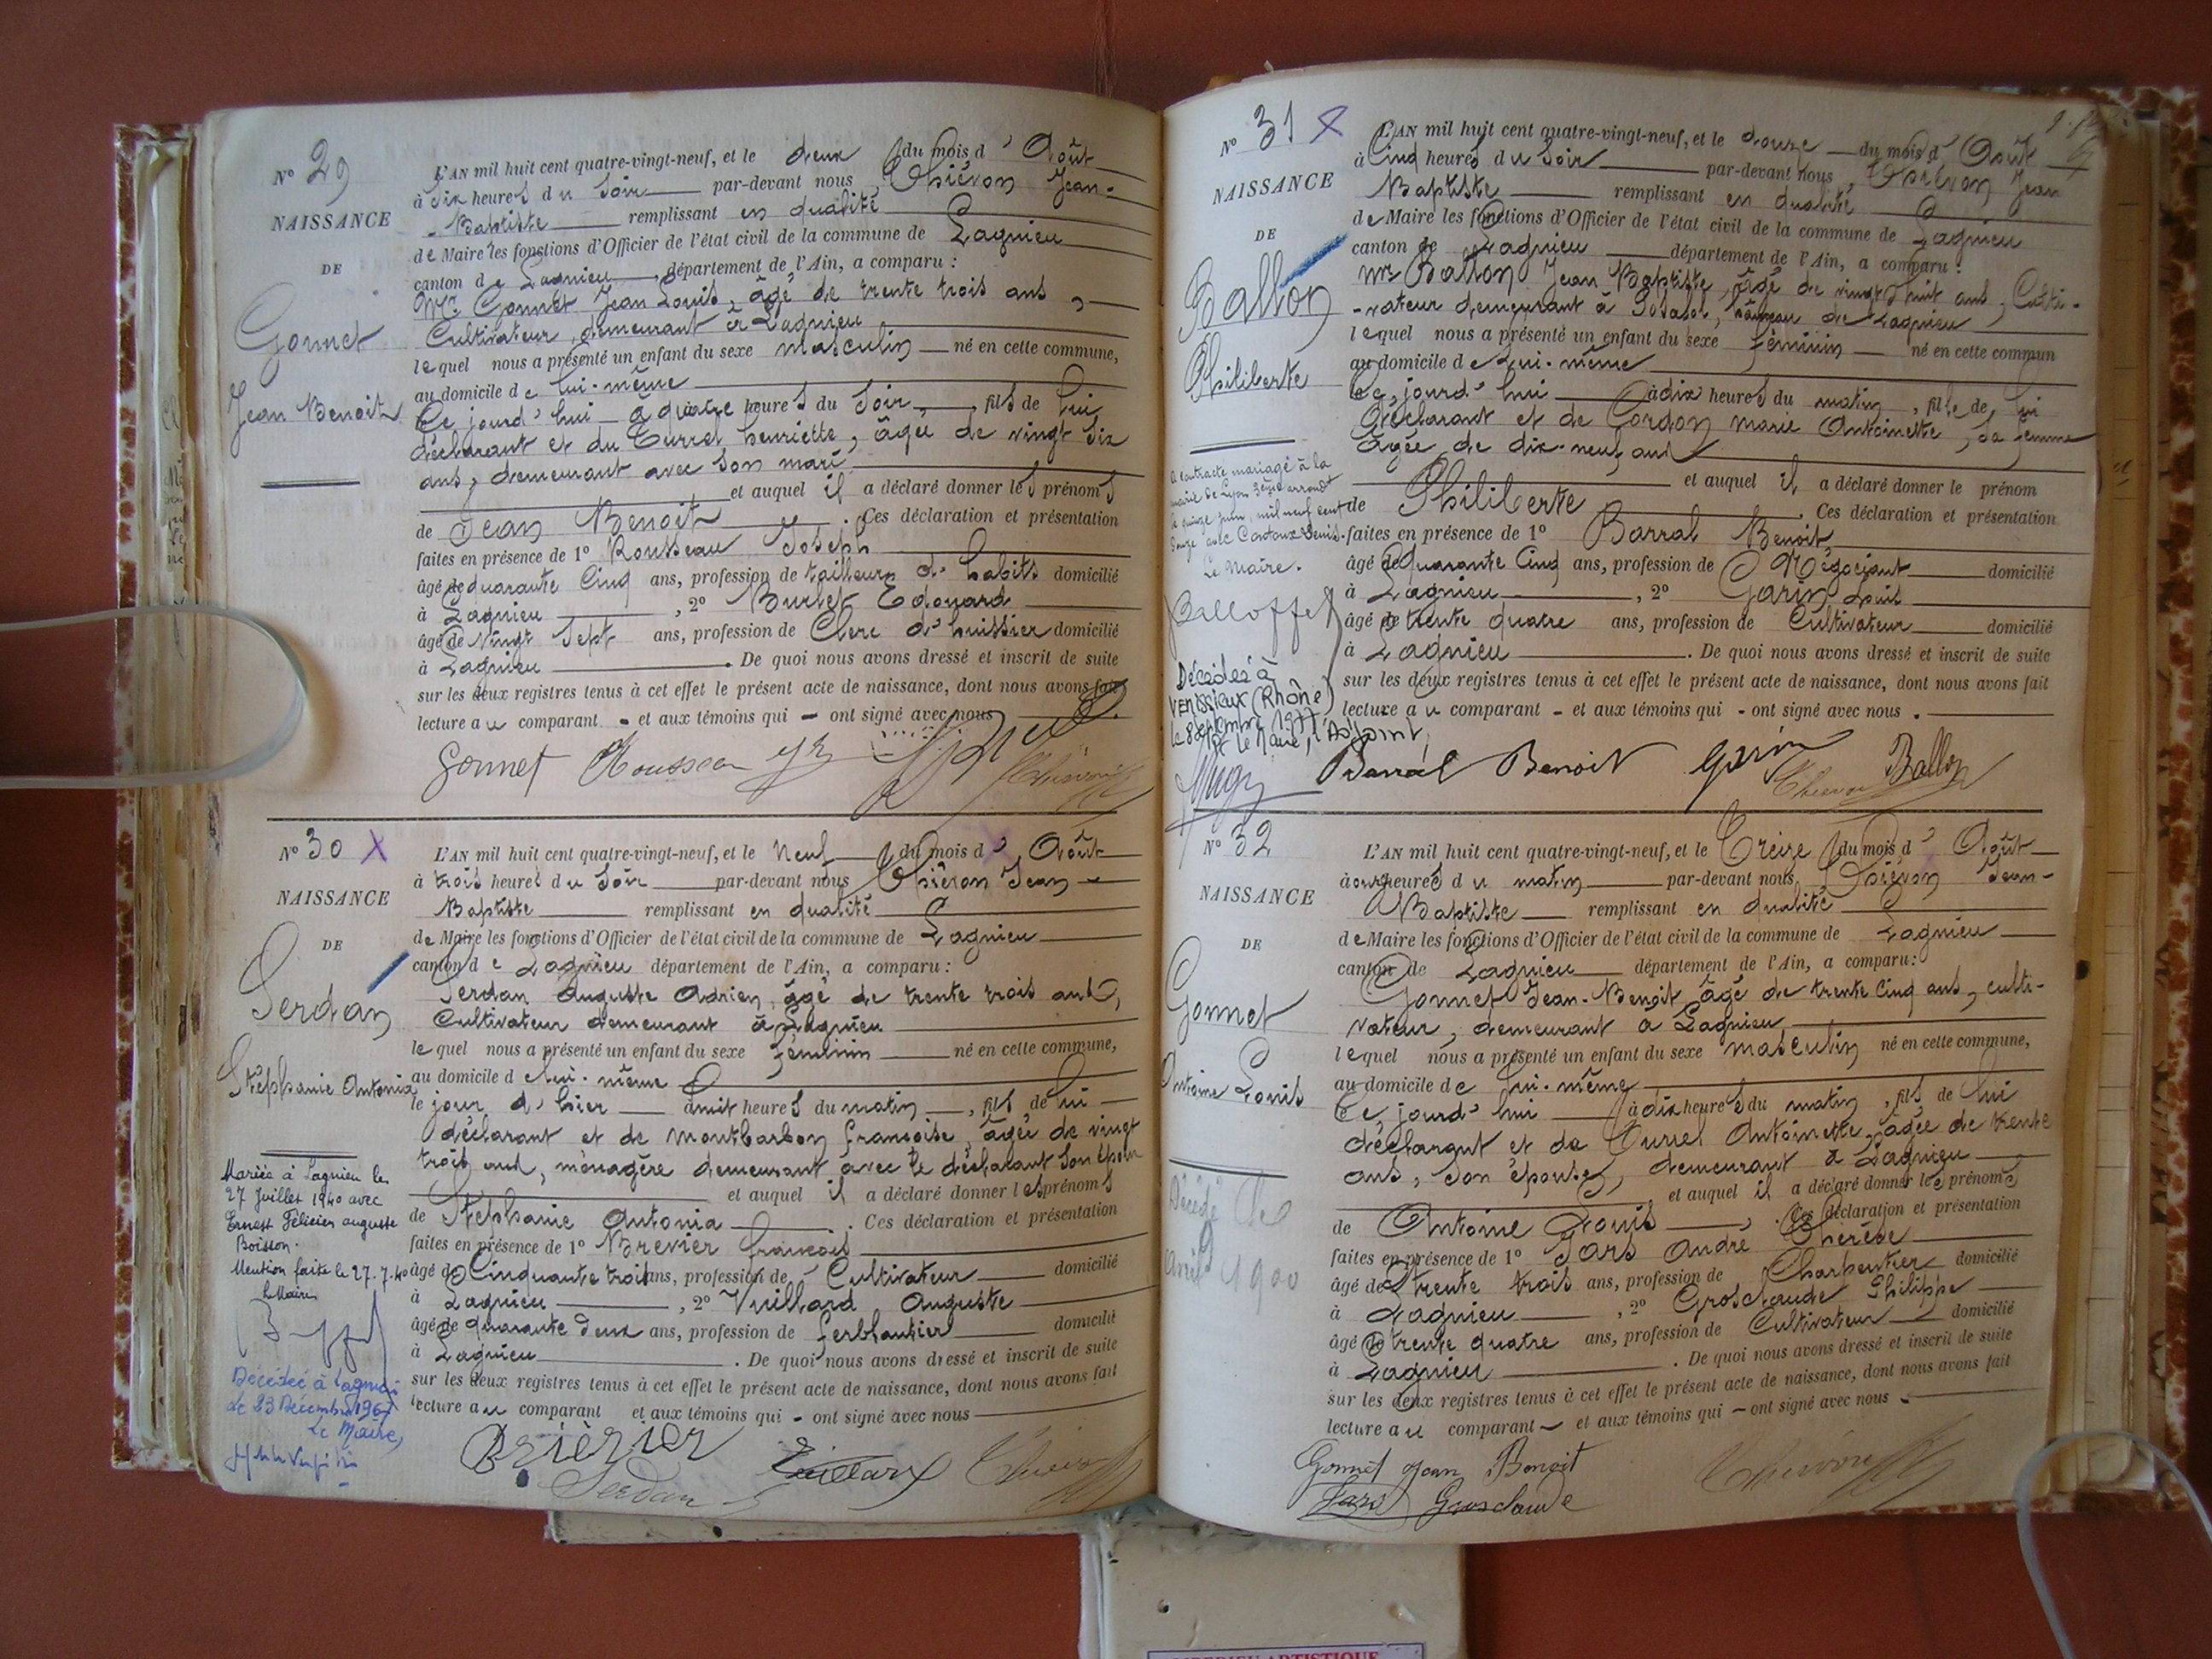 N° 29
NAISSANCE
DE
Gonnet
Jean Benoit
L'AN mil huit cent quatre-vingt-neuf, et le deux du mois d' Août
à Six heures du Soir par-devant nous, Thiévon Jean-
-Baptiste remplissant en qualité
de Maire les fonctions d'Officier de l'état civil de la commune de Lagnieu
canton de Lagnieu, département de l'Ain, a comparu :
Mr Gonnet Jean Louis, âgé de trente trois ans,
Cultivateur, demeurant à Lagnieu
lequel nous a présenté un enfant du sexe masculin né en cette commune,
au domicile de lui-même
Ce jourd'hui à quatre heures du Soir, fils de lui
déclarant et du Curret henriette, âgée de vingt Six
ans, demeurant avec son mari
et auquel il a déclaré donner les prénoms
de Jean Benoit. Ces déclaration et présentation
faites en présence de 1° Rousseau Joseph
âgé de quarante Cinq ans, profession de tailleur d'habits domicilié
à Lagnieu, 2° Burlet Edouard
âgé de Vingt Sept ans, profession de Clerc d'huissier domicilié
à Lagnieu. De quoi nous avons dressé et inscrit de suite
sur les deux registres tenus à cet effet le présent acte de naissance, dont nous avons fait
lecture au comparant - et aux témoins qui - ont signé avec nous
Gonnet Rousseau
N° 30 X
NAISSANCE
DE
Serdan
Stéphanie Antonia
Mariée à Lagnieu le
27 Juillet 1940 avec
Ernest Félicien auguste
Boisson.
Mention faite le 27.7.40
Le Maire
Décédée à Lagnieu
Le 23 Décembre 1967
Le Maire,
L'AN mil huit cent quatre-vingt-neuf, et le Neuf du mois d' Août
à trois heures du Soir par-devant nous Thiévon Jean-
Baptiste remplissant en qualité
de Maire les fonctions d'Officier de l'état civil de la commune de Lagnieu
canton de Lagnieu département de l'Ain, a comparu :
Serdan Auguste Adrien, âgé de trente trois ans,
Cultivateur demeurant à Lagnieu
lequel nous a présenté un enfant du sexe féminin né en cette commune,
au domicile de lui-même
le jour d'hier à huit heures du matin, fils de lui
déclarant et de Montbarbon françoise, âgée de vingt
trois ans, ménagère demeurant avec le déclarant Son époux
et auquel il a déclaré donner les prénoms
de Stéphanie Antonia. Ces déclaration et présentation
faites en présence de 1° Brevier françois
âgé de Cinquante trois ans, profession de Cultivateur domicilié
à Lagnieu, 2° Vuillard Auguste
âgé de quarante deux ans, profession de ferblantier domicilié
à Lagnieu. De quoi nous avons dressé et inscrit de suite
sur les deux registres tenus à cet effet le présent acte de naissance, dont nous avons fait
lecture au comparant et aux témoins qui - ont signé avec nous
Brièrier
Serdan
N° 31 X
NAISSANCE
DE
Ballon
Philiberte
A contracté mariage à la
mairie de Lyon 3eme arrondt
le quinze juin, mil neuf cent
douze avec Denis.
Le Maire.
Décédée à
VENISSIEUX (Rhône)
le 8 septembre 1977
Pt le Maire, l'Adjoint,
L'AN mil huit cent quatre-vingt-neuf, et le douze du mois d' Août
à Cinq heures du Soir par-devant nous, Thiévon Jean
Baptiste remplissant en qualité
de Maire les fonctions d'Officier de l'état civil de la commune de Lagnieu
canton de Lagnieu département de l'Ain, a comparu :
Mr Ballon Jean Baptiste, âgé de vingt huit ans, Culti-
-vateur demeurant à Posafol, hameau de Lagnieu
lequel nous a présenté un enfant du sexe féminin né en cette commun
au domicile de Lui-même
Ce, jourd'hui à dix heures du matin, fille de, lui
déclarant et de Cordon marie Antoinette, sa femme
âgée de dix-neuf ans
et auquel il a déclaré donner le prénom
de Philiberte. Ces déclaration et présentation
faites en présence de 1° Barral Benoit
âgé de Quarante Cinq ans, profession de Négociant domicilié
à Lagnieu, 2° Garin Louis
âgé de trente quatre ans, profession de Cultivateur domicilié
à Lagnieu. De quoi nous avons dressé et inscrit de suite
sur les deux registres tenus à cet effet le présent acte de naissance, dont nous avons fait
lecture au comparant - et aux témoins qui - ont signé avec nous.
Barral Benoit Garin Ballon
N° 32
NAISSANCE
DE
Gonnet
Antoine Louis
Décédé le
9
avril 1900
L'AN mil huit cent quatre-vingt-neuf, et le Treize du mois d' Août
à onze heures du matin par-devant nous, Thiévon Jean-
Baptiste remplissant en qualité
de Maire les fonctions d'Officier de l'état civil de la commune de Lagnieu
canton de Lagnieu département de l'Ain, a comparu:
Gonnet Jean-Benoit âgé de trente Cinq ans, culti-
vateur, demeurant à Lagnieu
lequel nous a présenté un enfant du sexe masculin né en cette commune,
au domicile de lui-même
Ce jourd'hui à dix heures du matin, fils de lui
déclarant et de Curret Antoinette, âgée de trente
ans, Son épouse, demeurant à Lagnieu
et auquel il a déclaré donner les prénoms
de Antoine Louis. Ces déclaration et présentation
faites en présence de 1° Jars André Thérèse
âgé de trente trois ans, profession de Charpentier domicilié
à Lagnieu, 2° Grosclaude Philippe
âgé de trente quatre ans, profession de Cultivateur domicilié
à Lagnieu. De quoi nous avons dressé et inscrit de suite
sur les deux registres tenus à cet effet le présent acte de naissance, dont nous avons fait
lecture au comparant - et aux témoins qui - ont signé avec nous
Gonnet Jean Benoit
Jars Grosclaude